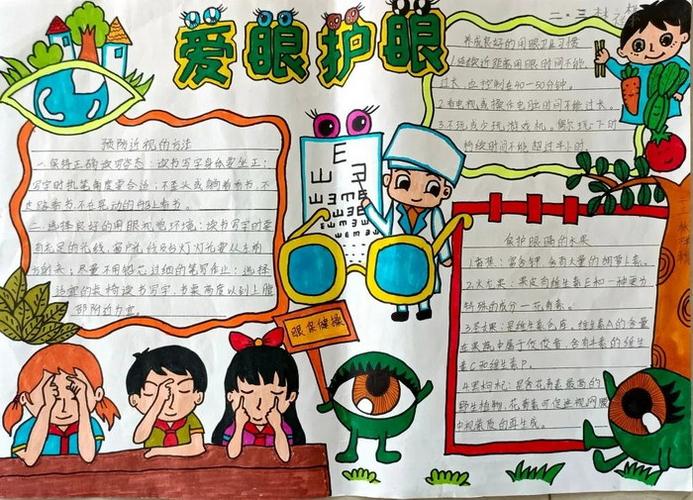 爱眼护眼
二·三 林
养成良好的用眼卫生习惯
1.连续近距离用眼时间不能
过长,应控制在40-50分钟。
2.看电视或操作电脑时间不能过长。
3.不玩或少玩游戏机,偶尔玩一下时
持续时间不能超过半小时。
预防近视的方法
一.保持正确读写姿态:读书写字身体要坐正;
写字时执笔角度要合适;不歪头或躺着看书,不
走路看书,不在晃动的车船上看书。
二.选择良好的用眼视觉环境:读书写字时要
有充足的光线,窗户光线或台灯灯光要从左前
方射来;尽量不用铅芯过细的笔写作业;选择
适宜的桌椅读书写字,书桌高度以到上腹
部附近为宜。
E
保护眼睛的水果
1.香蕉:富含钾,含有大量的胡萝卜素。
2.火龙果:果皮内维生素E和一种更为
特殊的成分—花青素。
3.芒果:是维生素仓库,维生素A的含量
在果蔬中属于佼佼者,含有丰富的维生
素C和维生素P。
4.黑枸杞:是含花青素最高的
野生植物,花青素可促进视网膜
中视紫质的再生成。
眼保健操